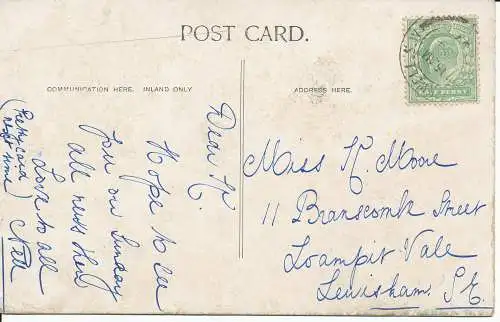 POST CARD.
COMMUNICATION HERE. INLAND ONLY
ADDRESS HERE.
Dear K.
Hope to see
you on Sunday
all needs here
Love to all
Nell
(Pretty card
next time)
Miss K. Moore
11 Branscomb Street
Loampit Vale
Lewisham. S.E.
HALFPENNY